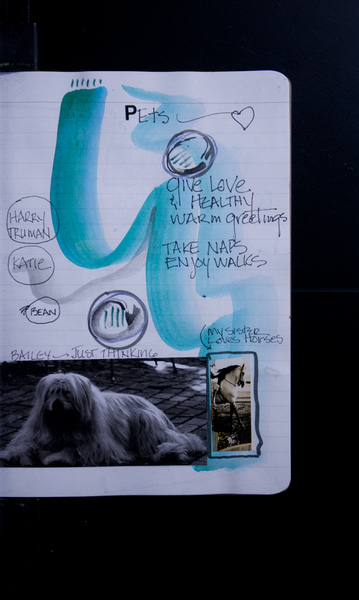 Pets
GIVE LOVE
& HEALTHY
WARM greetings
TAKE NAPS
ENJOY WALKS
HARRY
TRUMAN
KATIE
BEAN
MY SISTER
LOVES HORSES
BAILEY JUST THINKING